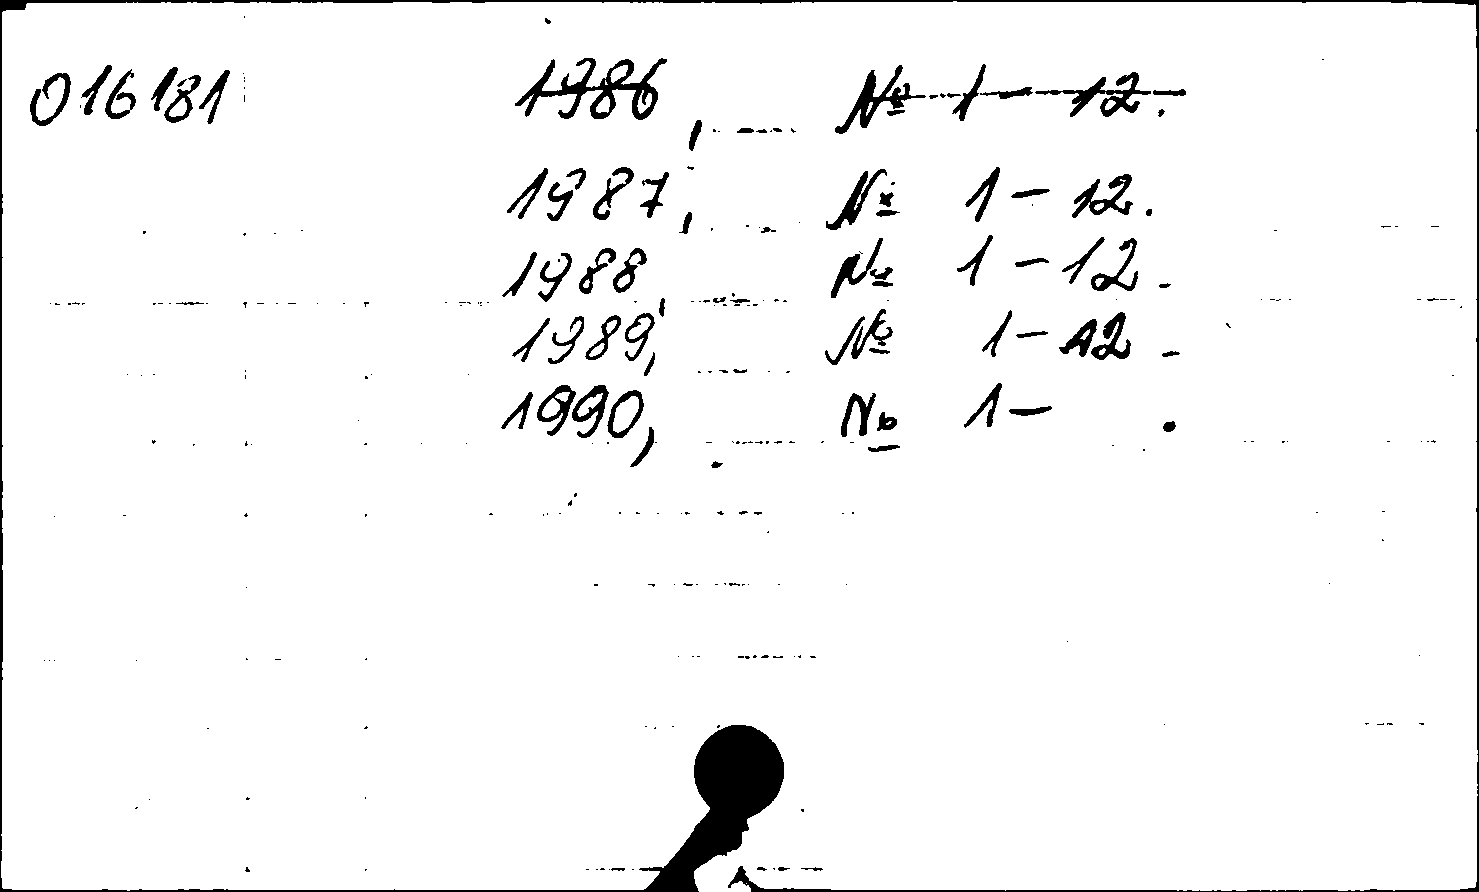 016181 1986, № 1 - 12.
1987, № 1 - 12.
1988, № 1 - 12.
1989, № 1 - 12.
1990, № 1 - .